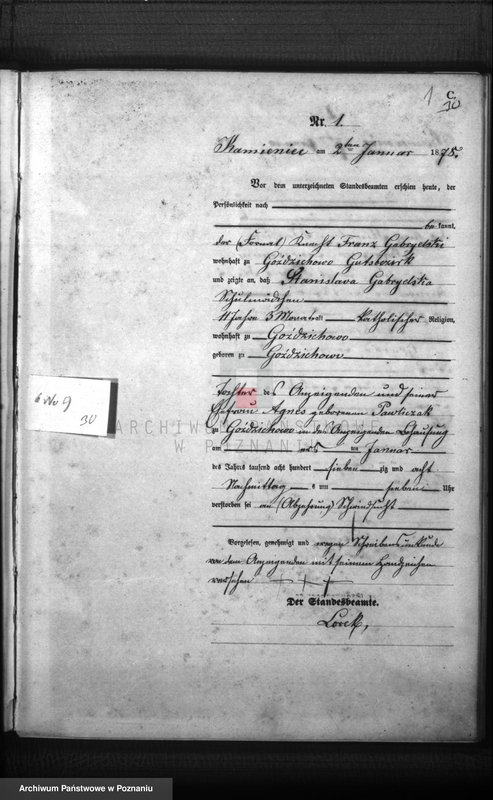 1 C.
10
Nr. 1.
Kamieniec am 2ten Januar 1878.
Vor dem unterzeichneten Standesbeamten erschien heute, der
Persönlichkeit nach
be kannt,
der (Fornal) Knecht Franz Gabryelski
wohnhaft zu Goździchowo Gutsbezirk
und zeigte an, daß Stanislava Gabryelska
Schulmädchen
11 Jahre 3 Monat alt katholischer Religion,
wohnhaft zu Goździchowo
geboren zu Goździchowo
Tochter des Anzeigenden und seiner
Ehefrau Agnes geborenen Pawliczak
zu Goździchowo in des Anzeigenden Behausung
am ersten Januar
des Jahrs tausend acht hundert sieben zig und acht
Nachmittag s um sieben Uhr
verstorben sei an (Abzehrung) Schwindsucht
6 No 9
30
ARCHIWUM PAŃSTWOWE
W POZNANIU
Vorgelesen, genehmigt und wegen Schreibensunkunde
von dem Anzeigenden mit seinem Handzeichen
versehen + + +
Der Standesbeamte.
Archiwum Państwowe w Poznaniu